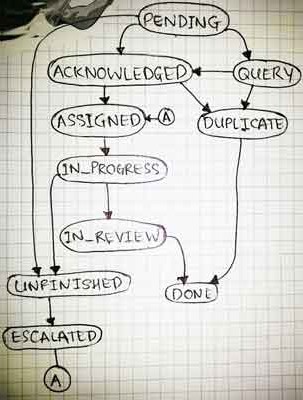 PENDING
ACKNOWLEDGED
QUERY
ASSIGNED
A
DUPLICATE
IN_PROGRESS
IN_REVIEW
UNFINISHED
DONE
ESCALATED
A